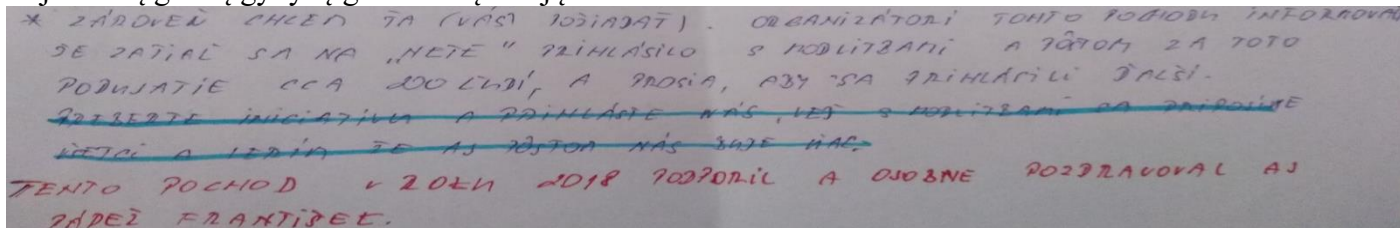 * ZÁROVEŇ CHCEM ŤA (VÁS) POŽIADAŤ). ORGANIZÁTORI TOHTO POCHODU INFORMOVALI
ŽE ZATIAĽ SA NA „NETE" PRIHLÁSILO S MODLITBAMI A PÔSTOM ZA TOTO
PODUJATIE CCA 200 ĽUDÍ, A PROSIA, ABY SA PRIHLÁSILI ĎALŠÍ.
INICIATÍVU A PRIHLÁSTE NÁS, VEĎ S MODLITBAMI SA PRIPOJÍME
VŠETCI A VERÍM ŽE AJ PÔSTOM NÁS BUDE VIAC.
TENTO POCHOD V ROKU 2018 PODPORIL A OSOBNE POZDRAVOVAL AJ
PÁPEŽ FRANTIŠEK.